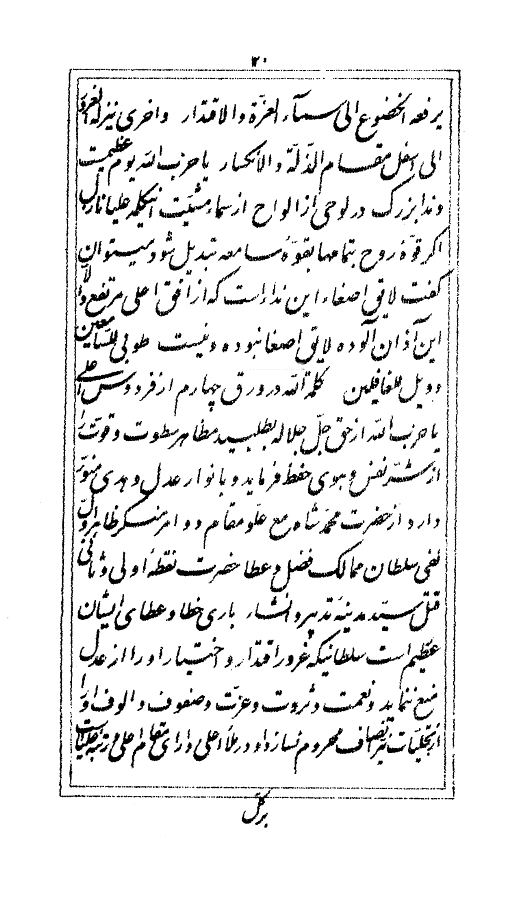 ۲۰
یرفعه الخضوع الی سمآء العزّة والاقتدار واخری ینزله الغرور
الی اسفل مقام الذّلّة والانکسار یا حزب الله یوم عظیمست
و ندا بزرگ در لوحی از الواح از سماء مشیّت این کلمه علیا نازل
اگر قوّهٔ روح بتمامها بقوّهٔ سامعه تبدیل شود میتوان
گفت لایق اصغاء این نداست که از افق اعلی مرتفع والّا
این آذان آلوده لایق اصغا نبوده و نیست طوبی للسّامعین
و ویل للغافلین کلمة الله در ورق چهارم از فردوس اعلی
یا حزب الله از حق جلّ جلاله بطلبید مظاهر سطوت و قوّت را
از شرّ نفس و هوی حفظ فرماید و بانوار عدل و هدی منوّر
دارد از حضرت محمّد شاه مع علوّ مقام دو امر منکر ظاهر اوّل
نفی سلطان ممالک فضل و عطا حضرت نقطهٔ اولی و ثانی
قتل سیّد مدینهٔ تدبیر و انشاء باری خطا و عطای ایشان
عظیم است سلطانیکه غرور اقتدار و اختیار او را از عدل
منع ننماید و نعمت و ثروت و عزّت و صفوف و الوف او را
از تجلّیات نیّر انصاف محروم نسازد او در ملأ اعلی دارای مقام اعلی و رتبهٔ علیاست
بر کلّ